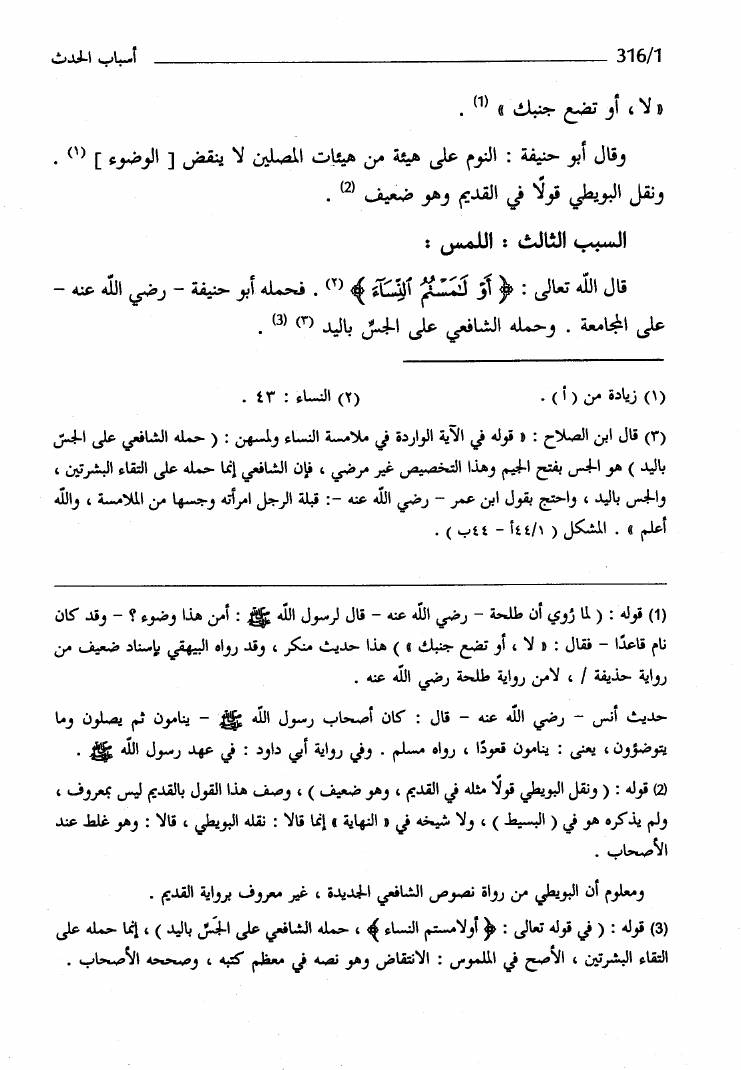 316/1 أسباب الحدث
« لا ، أو تضع جنبك » (1) .
وقال أبو حنيفة : النوم على هيئة من هيئات المصلين لا ينقض [ الوضوء ] (١) .
ونقل البويطي قولًا في القديم وهو ضعيف (2) .
السبب الثالث : اللمس :
قال الله تعالى : ﴿ أَوْ لَٰمَسْتُمُ ٱلنِّسَآءَ ﴾ (٢) . فحمله أبو حنيفة – رضي الله عنه –
على المجامعة . وحمله الشافعي على الجسِّ باليد (٣) (3) .
(١) زيادة من ( أ ) . (٢) النساء : ٤٣ .
(٣) قال ابن الصلاح : « قوله في الآية الواردة في ملامسة النساء ولمسهن : ( حمله الشافعي على الجسّ
باليد ) هو الجس بفتح الجيم وهذا التخصيص غير مرضي ، فإن الشافعي إنما حمله على التقاء البشرتين ،
والجس باليد ، واحتج بقول ابن عمر – رضي الله عنه –: قبلة الرجل امرأته وجسها من الملامسة ، والله
أعلم » . المشكل ( ٤٤/١أ – ٤٤ب ) .
(1) قوله : ( لما رُوي أن طلحة – رضي الله عنه – قال لرسول الله ﷺ : أمن هذا وضوء ؟ – وقد كان
نام قاعدًا – فقال : « لا ، أو تضع جنبك » ) هذا حديث منكر ، وقد رواه البيهقي بإسناد ضعيف من
رواية حذيفة / ، لامن رواية طلحة رضي الله عنه .
حديث أنس – رضي الله عنه – قال : كان أصحاب رسول الله ﷺ – ينامون ثم يصلون وما
يتوضؤون ، يعنى : ينامون قعودًا ، رواه مسلم . وفي رواية أبي داود : في عهد رسول الله ﷺ .
(2) قوله : ( ونقل البويطي قولًا مثله في القديم ، وهو ضعيف ) ، وصف هذا القول بالقديم ليس بمعروف ،
ولم يذكره هو في ( البسيط ) ، ولا شيخه في « النهاية » إنما قالا : نقله البويطي ، قالا : وهو غلط عند
الأصحاب .
ومعلوم أن البويطي من رواة نصوص الشافعي الجديدة ، غير معروف برواية القديم .
(3) قوله : ( في قوله تعالى : ﴿ أولامستم النساء ﴾ ، حمله الشافعي على الجَسِّ باليد ) ، إنما حمله على
التقاء البشرتين ، الأصح في الملموس : الانتقاض وهو نصه في معظم كتبه ، وصححه الأصحاب .